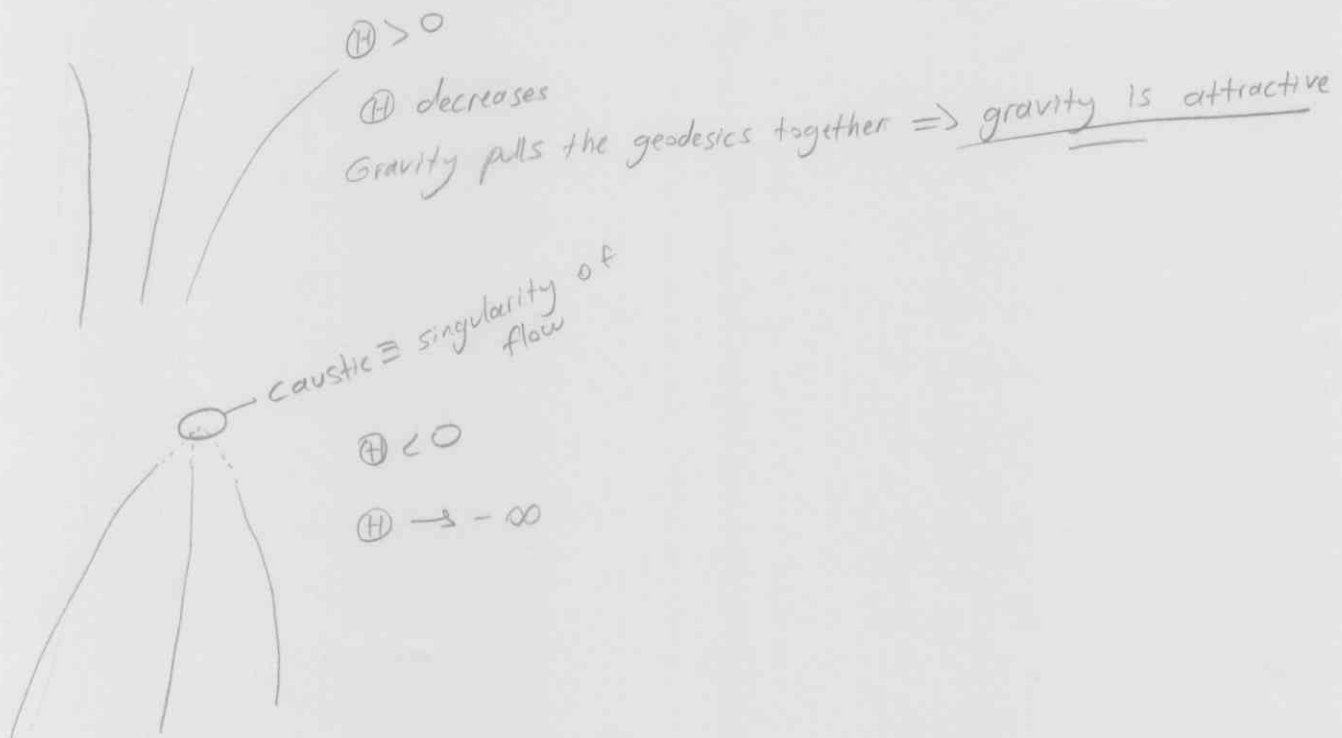 Ⓗ > 0
Ⓗ decreases
Gravity pulls the geodesics together => gravity is attractive
caustic ≡ singularity of
flow
Ⓗ < 0
Ⓗ → - ∞